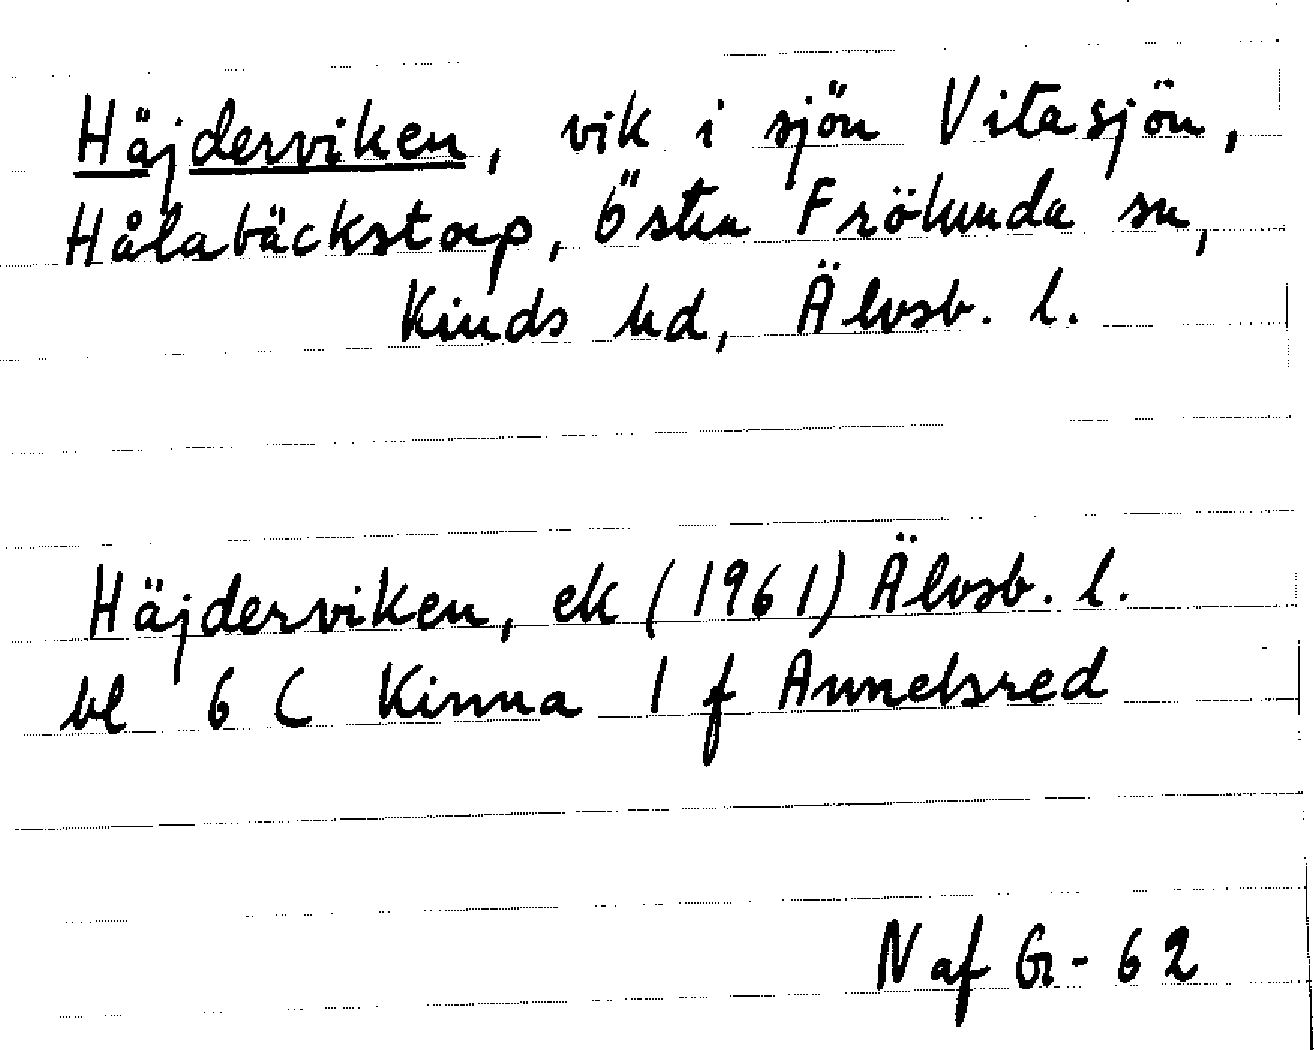 Häjderviken, vik i sjön Vitasjön,
Hålabäckstorp, Östra Frölunda sn,
Kinds hd, Älvsb. l.
Häjderviken, ek (1961) Älvsb. l.
bl 6 C Kinna 1 f Annelsred
N af G-62